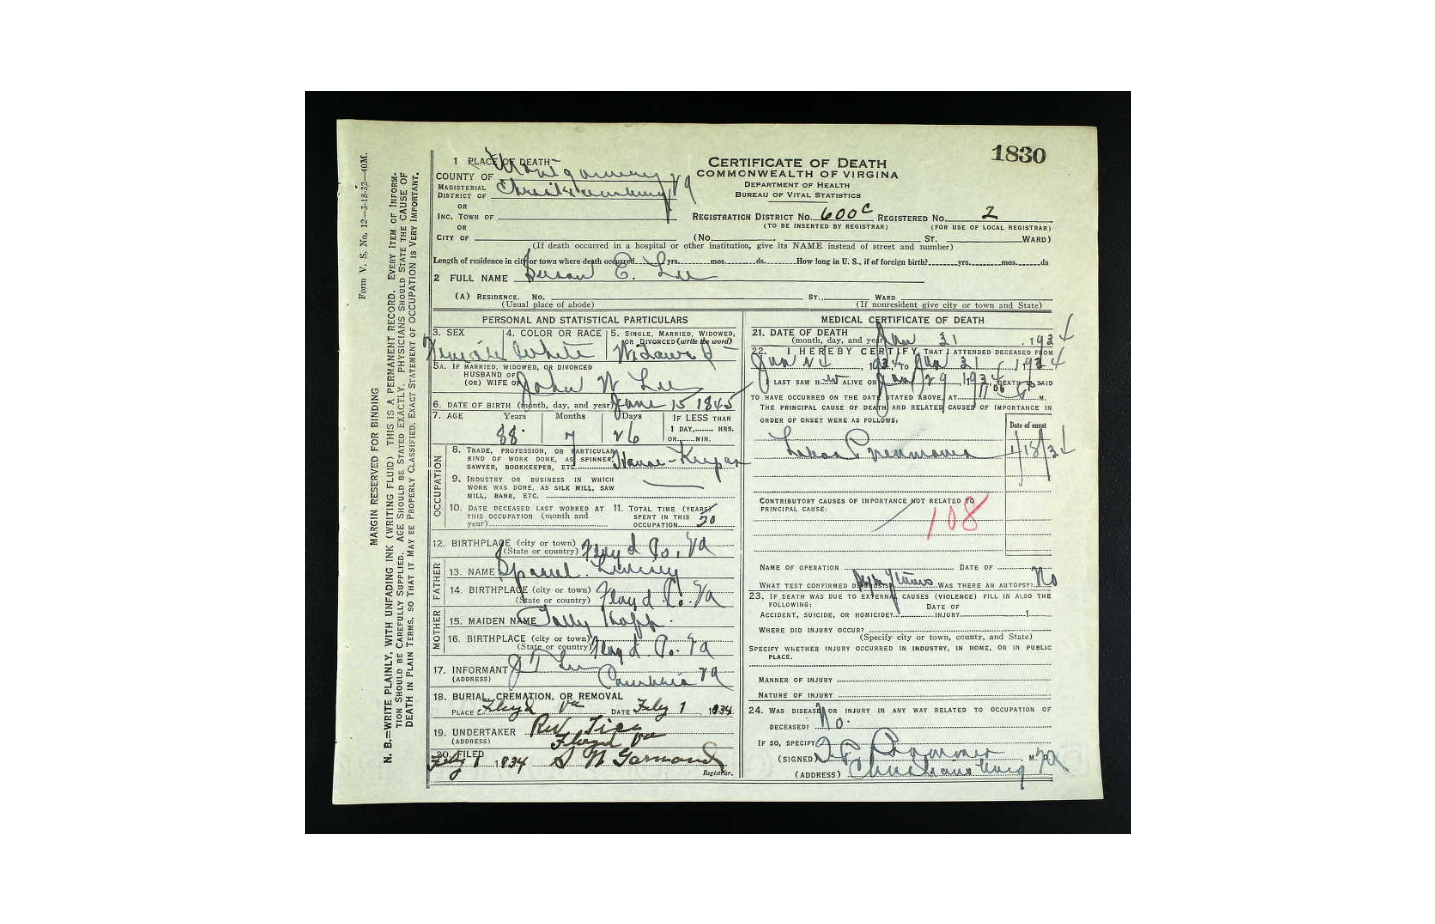 1830
1 PLACE OF DEATH
CERTIFICATE OF DEATH
COUNTY OF Montgomery
COMMONWEALTH OF VIRGINIA
MAGISTERIAL
DISTRICT OF Christiansburg Va
DEPARTMENT OF HEALTH
BUREAU OF VITAL STATISTICS
OR
INC. TOWN OF
REGISTRATION DISTRICT NO. 600C REGISTERED NO. 2
(TO BE INSERTED BY REGISTRAR) (FOR USE OF LOCAL REGISTRAR)
OR
CITY OF (No. ST. WARD)
(If death occurred in a hospital or other institution, give its NAME instead of street and number)
Length of residence in city or town where death occurred yrs. mos. ds. How long in U. S., if of foreign birth? yrs. mos. ds
2 FULL NAME Susan E. Lee
(A) RESIDENCE. No. ST., WARD
(Usual place of abode) (If nonresident give city or town and State)
PERSONAL AND STATISTICAL PARTICULARS
3. SEX 4. COLOR OR RACE 5. SINGLE, MARRIED, WIDOWED,
OR DIVORCED (write the word)
Female White Widowed
5A. IF MARRIED, WIDOWED, OR DIVORCED
HUSBAND OF
(OR) WIFE OF John W Lee
6. DATE OF BIRTH (month, day, and year) June 15 1845
7. AGE Years Months Days IF LESS THAN
1 DAY, HRS.
OR MIN.
88 7 26
OCCUPATION
8. TRADE, PROFESSION, OR PARTICULAR
KIND OF WORK DONE, AS SPINNER,
SAWYER, BOOKKEEPER, ETC. House-Keeper
9. INDUSTRY OR BUSINESS IN WHICH
WORK WAS DONE, AS SILK MILL, SAW
MILL, BANK, ETC.
10. DATE DECEASED LAST WORKED AT
THIS OCCUPATION (month and
year)
11. TOTAL TIME (YEARS)
SPENT IN THIS
OCCUPATION 50
12. BIRTHPLACE (city or town)
(State or country) Floyd Co. Va
FATHER
13. NAME
14. BIRTHPLACE (city or town)
(State or country) Floyd Co. Va
MOTHER
15. MAIDEN NAME
16. BIRTHPLACE (city or town)
(State or country) Floyd Co. Va
17. INFORMANT J T Lee
(ADDRESS) Cambria Va
18. BURIAL, CREMATION, OR REMOVAL
PLACE Floyd Va DATE Feby 1 1934
19. UNDERTAKER
(ADDRESS) Floyd Va
20. FILED
Feby 1 1934 S W Garmond
Registrar.
MEDICAL CERTIFICATE OF DEATH
21. DATE OF DEATH
(month, day, and year) Jan 31, 1934
22. I HEREBY CERTIFY THAT I ATTENDED DECEASED FROM
Jan 24 1934, TO Jan 31 1934
I LAST SAW H er ALIVE ON Jan 29 1934, DEATH IS SAID
TO HAVE OCCURRED ON THE DATE STATED ABOVE, AT M.
THE PRINCIPAL CAUSE OF DEATH AND RELATED CAUSES OF IMPORTANCE IN
ORDER OF ONSET WERE AS FOLLOWS:
Date of onset
Lobar Pneumonia 1/18/34
CONTRIBUTORY CAUSES OF IMPORTANCE NOT RELATED TO
PRINCIPAL CAUSE:
108
NAME OF OPERATION DATE OF
WHAT TEST CONFIRMED DIAGNOSIS? Symptoms WAS THERE AN AUTOPSY? No
23. IF DEATH WAS DUE TO EXTERNAL CAUSES (VIOLENCE) FILL IN ALSO THE
FOLLOWING:
ACCIDENT, SUICIDE, OR HOMICIDE? DATE OF INJURY
WHERE DID INJURY OCCUR?
(Specify city or town, county, and State)
SPECIFY WHETHER INJURY OCCURRED IN INDUSTRY, IN HOME, OR IN PUBLIC
PLACE.
MANNER OF INJURY
NATURE OF INJURY
24. WAS DISEASE OR INJURY IN ANY WAY RELATED TO OCCUPATION OF
DECEASED? No.
IF SO, SPECIFY
(SIGNED) M. D.
(ADDRESS) Christiansburg Va
Form V. S. No. 12—3-18-32—40M.
MARGIN RESERVED FOR BINDING
N. B.—WRITE PLAINLY, WITH UNFADING INK (WRITING FLUID) THIS IS A PERMANENT RECORD. EVERY ITEM OF INFORMA-
TION SHOULD BE CAREFULLY SUPPLIED. AGE SHOULD BE STATED EXACTLY. PHYSICIANS SHOULD STATE THE CAUSE OF
DEATH IN PLAIN TERMS, SO THAT IT MAY BE PROPERLY CLASSIFIED. EXACT STATEMENT OF OCCUPATION IS VERY IMPORTANT.